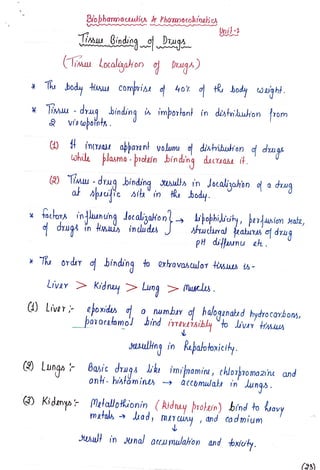 Biopharmaceutics & Pharmacokinetics
Unit-1
Tissue Binding of Drugs
(Tissue Localization of Drugs)
* The body tissue comprise of 40% of the body weight.
* Tissue-drug binding is important in distribution from
2 viewpoints.
(1) It increase apparent volume of distribution of drugs
while plasma-protein binding decrease it.
(2) Tissue-drug binding results in localization of a drug
at specific site in the body.
* factors influencing localization } → lipophilicity, perfusion rate,
of drugs in tissues includes structural features of drug
pH difference etc.
* The order of binding to extravascular tissues is-
Liver > Kidney > Lung > Muscles.
(1) Liver :- epoxides of a number of halogenated hydrocarbons,
paracetamol bind irreversibly to liver tissues
↓
resulting in Hepatotoxicity.
(2) Lungs :- Basic drugs like imipramine, chlorpromazine and
anti-histamines → accumulate in lungs.
(3) Kidenys :- Metallothionin (Kidney protein) bind to heavy
metals → lead, mercury, and cadmium
↓
result in renal accumulation and toxicity.
(23)